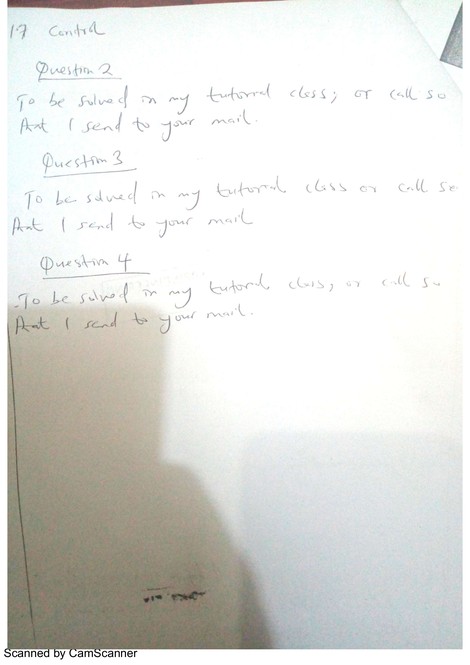 17 Control
Question 2
To be solved in my tutorial class; or call so
that I send to your mail.
Question 3
To be solved in my tutorial class or call so
that I send to your mail
Question 4
To be solved in my tutorial class, or call so
that I send to your mail.
Scanned by CamScanner